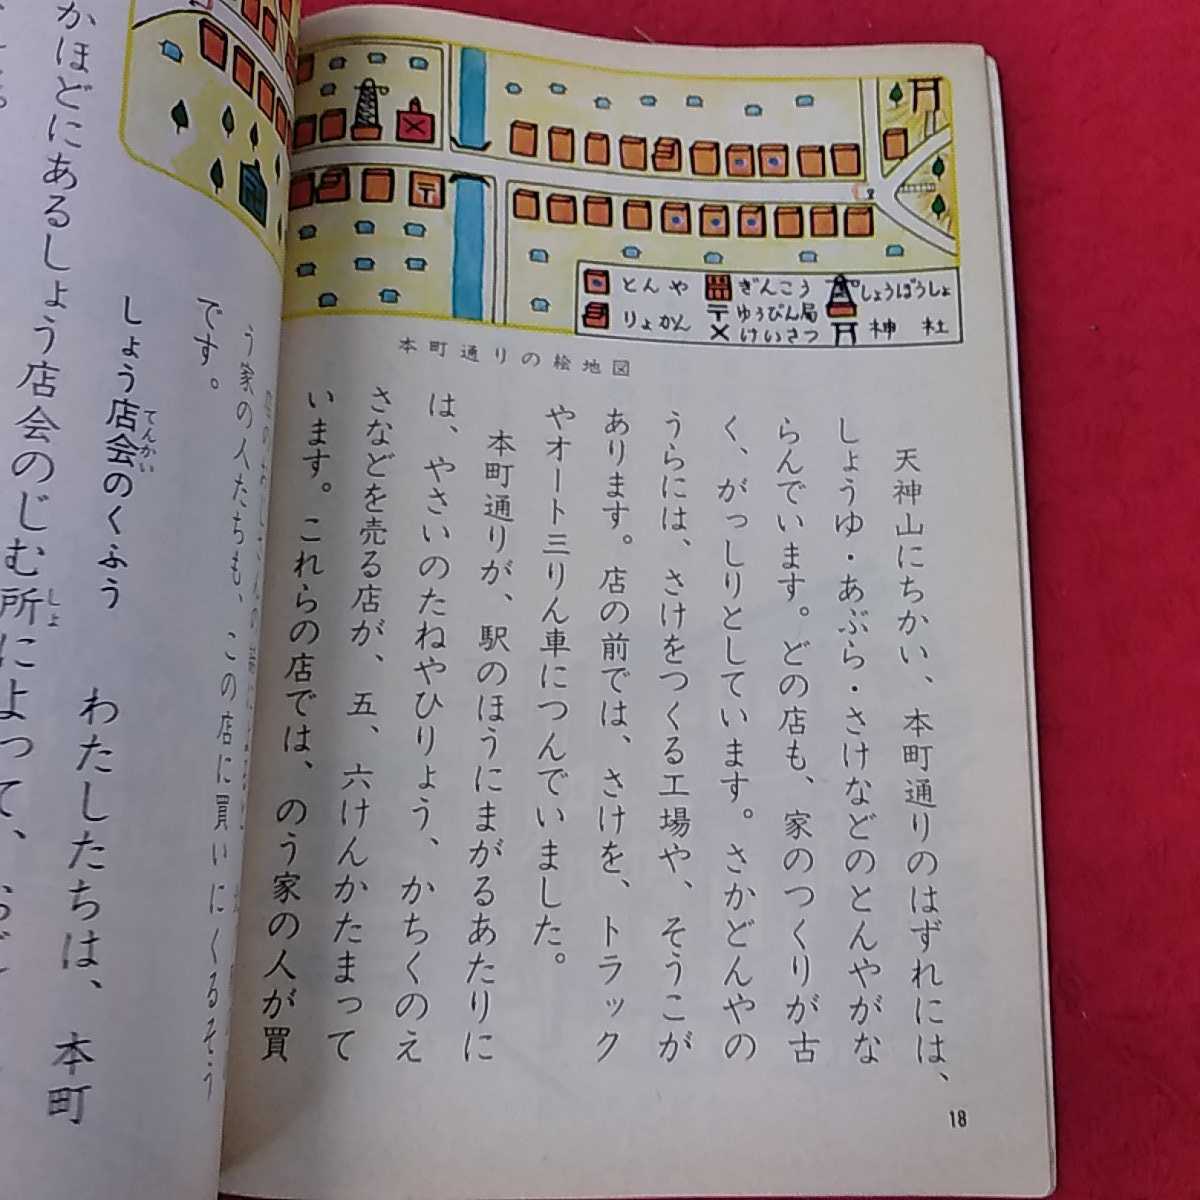 とんや
ぎんこう
しょうぼうしょ
りょかん
ゆうびん局
けいさつ
神社
本町通りの絵地図
天神山にちかい、本町通りのはずれには、
しょうゆ・あぶら・さけなどのとんやがな
らんでいます。どの店も、家のつくりが古
く、がっしりとしています。さかどんやの
うらには、さけをつくる工場や、そうこが
あります。店の前では、さけを、トラック
やオート三りん車につんでいました。
本町通りが、駅のほうにまがるあたりに
は、やさいのたねやひりょう、かちくのえ
さなどを売る店が、五、六けんかたまって
います。これらの店では、のう家の人が買
う家の人たちも、この店に買いにくるそう
です。
しょう店会のくふう わたしたちは、本町
てんかい
かほどにあるしょう店会のじむ所によって、
しょ
18